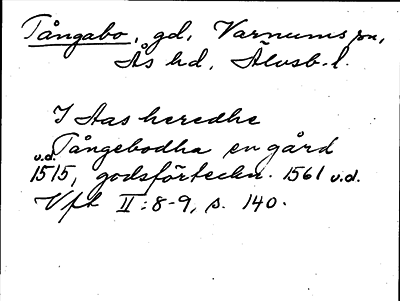 Tångabo, gd, Varnums sn,
Ås hd, Älvsb. l.
I Aas heredhe
Tångebodha en gård
u.d. 1515, godsförteckn. 1561 u.d.
Vft II:8-9, s. 140.